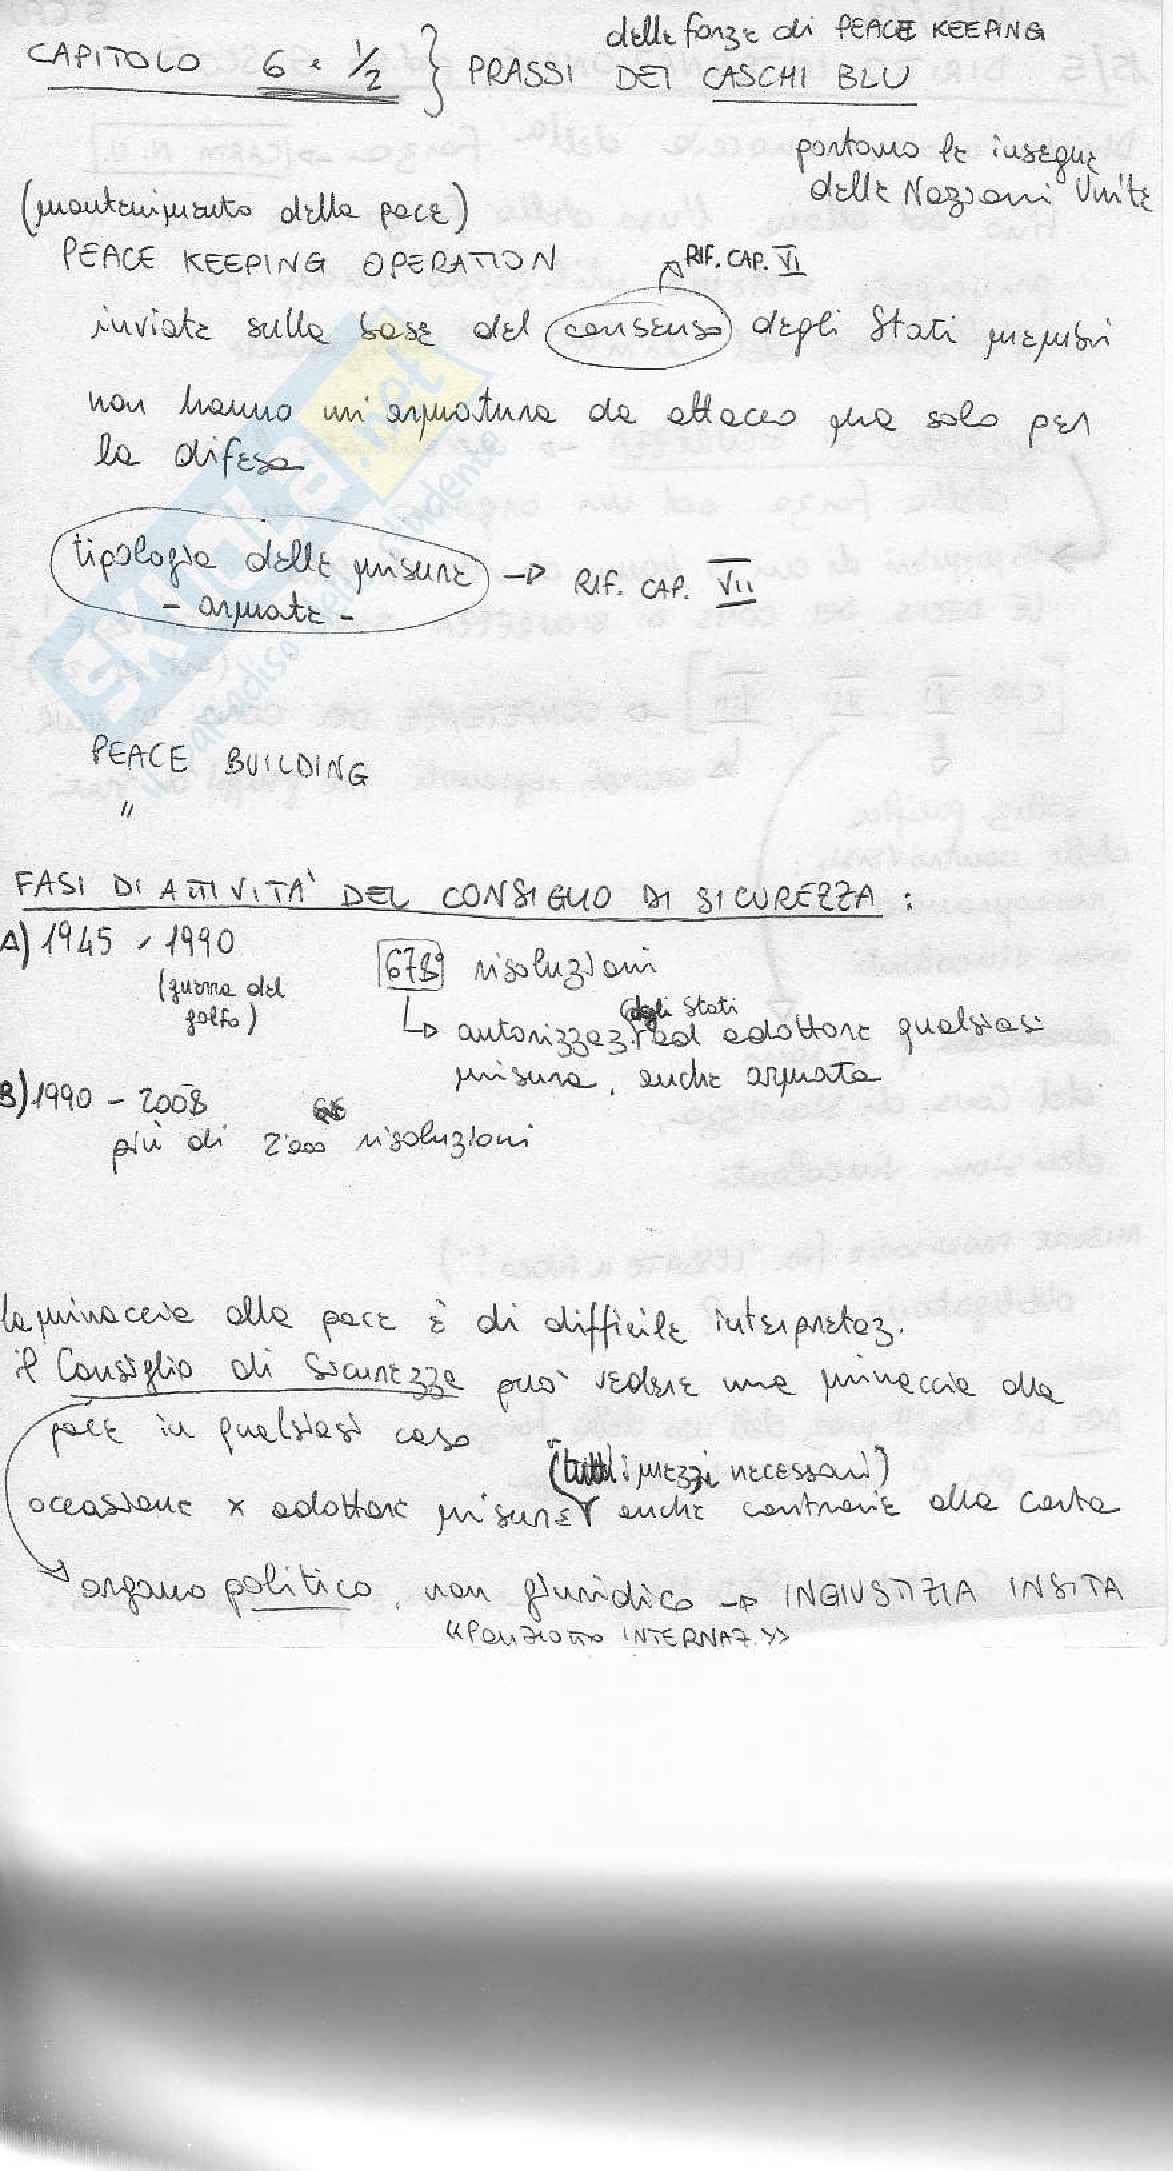 delle forze di PEACE KEEPING
CAPITOLO 6 e 1/2 } PRASSI DEI CASCHI BLU
portano le insegne
delle Nazioni Unite
(mantenimento della pace)
PEACE KEEPING OPERATION
RIF. CAP. VI
inviate sulla base del consenso degli Stati membri
non hanno un'armatura da attacco ma solo per
la difesa
tipologia delle misure → RIF. CAP. VII
- armate -
PEACE BUILDING
"
FASI DI ATTIVITA' DEL CONSIGLIO DI SICUREZZA :
A) 1945 - 1990
(guerra del
golfo)
678 risoluzioni
(degli Stati
↳ autorizzaz. ad adottare qualsiasi
misura, anche armata
B) 1990 - 2008
più di 2000 risoluzioni
la minaccia alla pace è di difficile interpretaz.
il Consiglio di Sicurezza può vedere una minaccia alla
pace in qualsiasi caso
(tutti i mezzi necessari)
occasione x adottare misure anche contrarie alla Carta
organo politico, non giuridico → INGIUSTIZIA INSITA
«Poliziotto INTERNAZ.»
SKUOLA.net
il paradiso dello studente